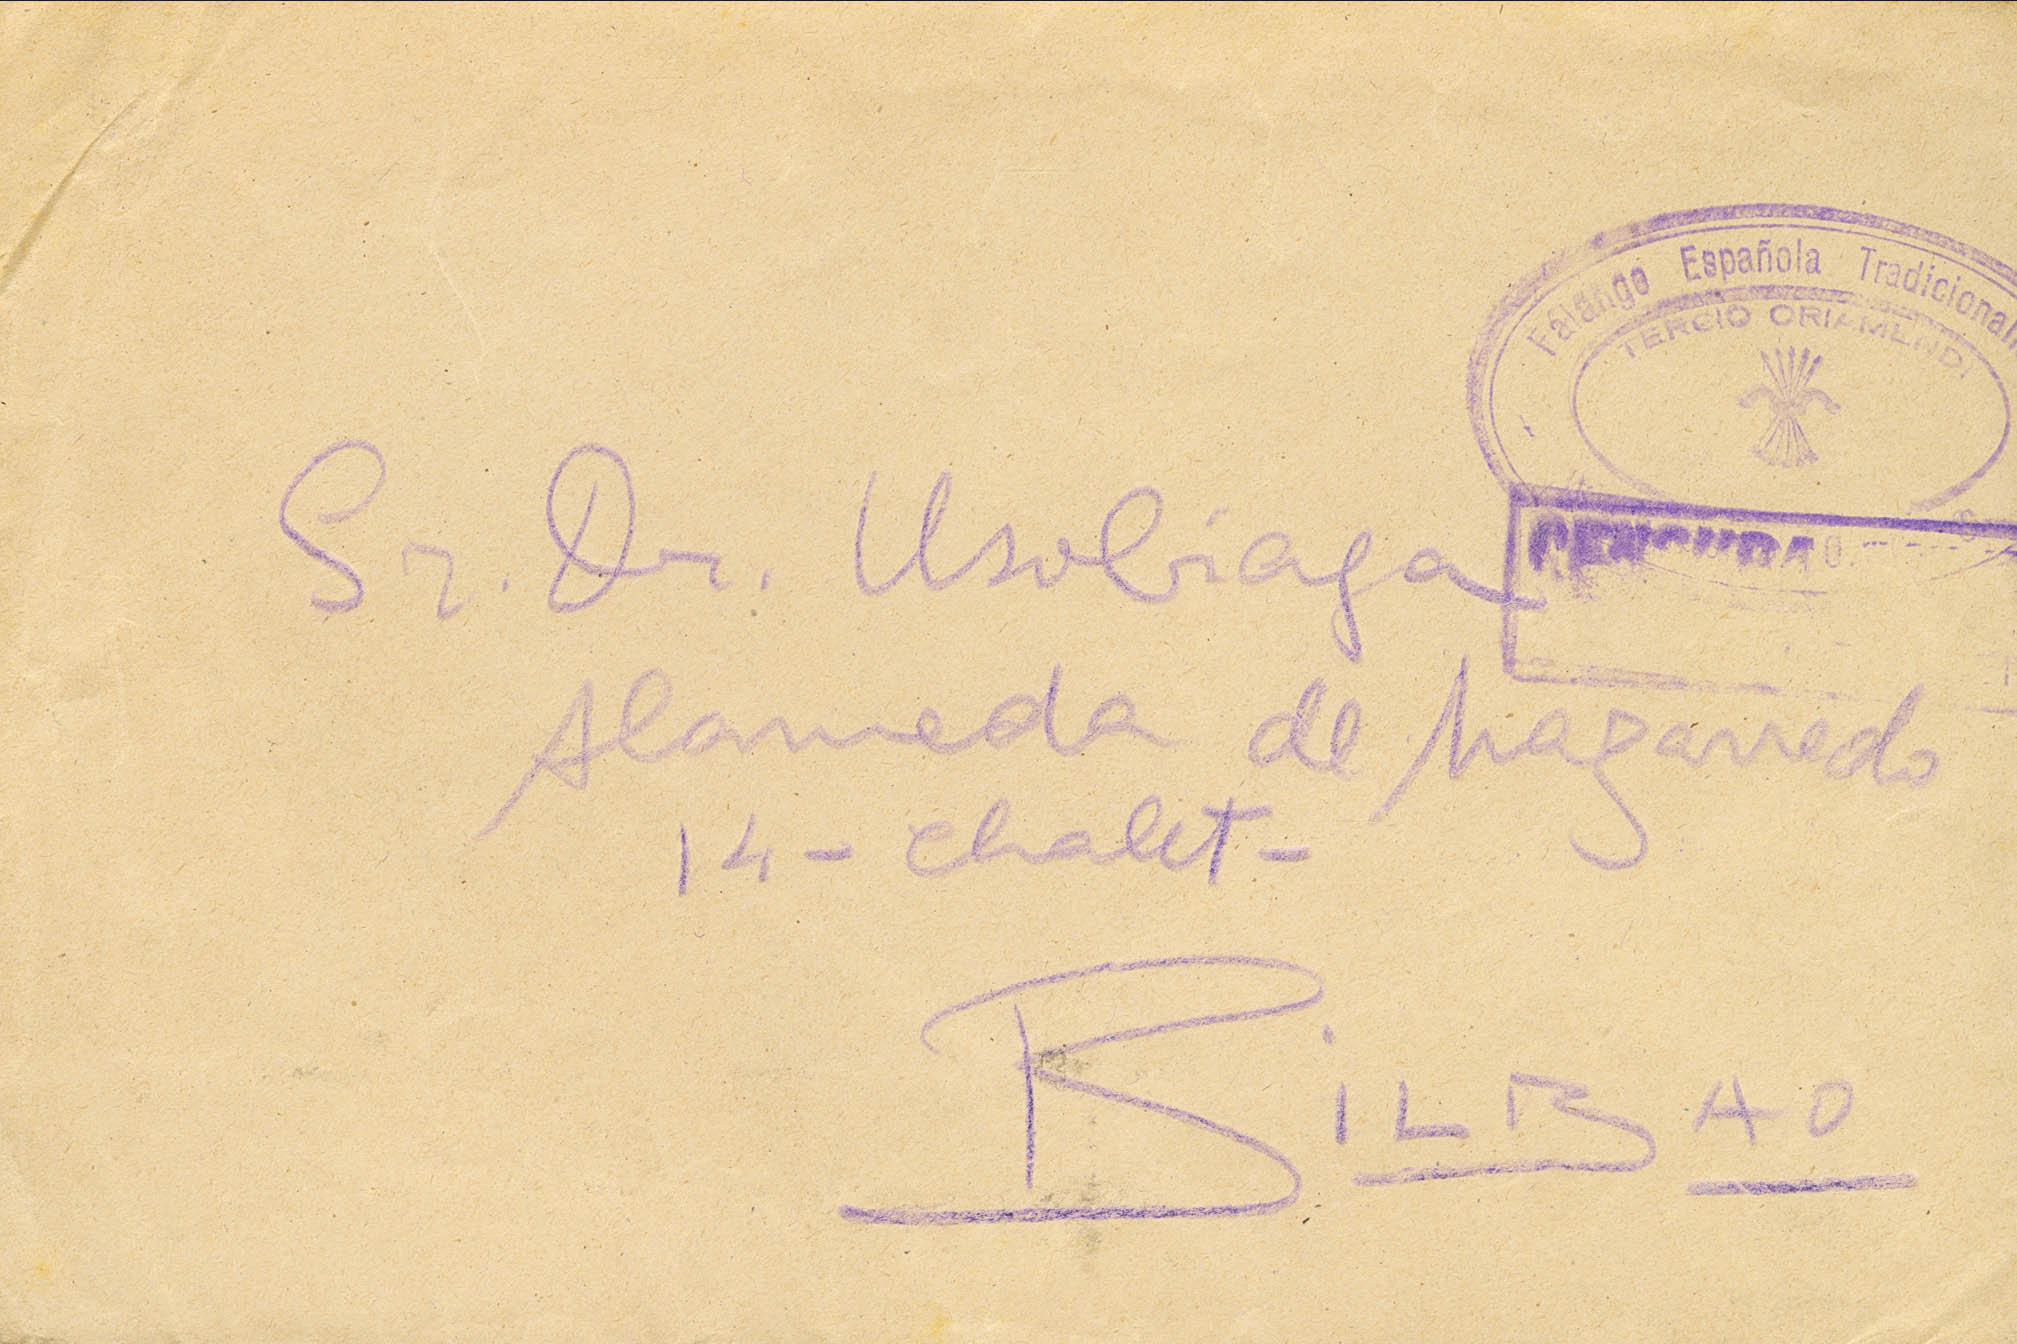 Falange Española Tradicional
TERCIO ORIAMENDI
CENSURA
Sr. Dr. Usobiaga
Alameda de Mazarredo
14 - chalet -
BiLBAO